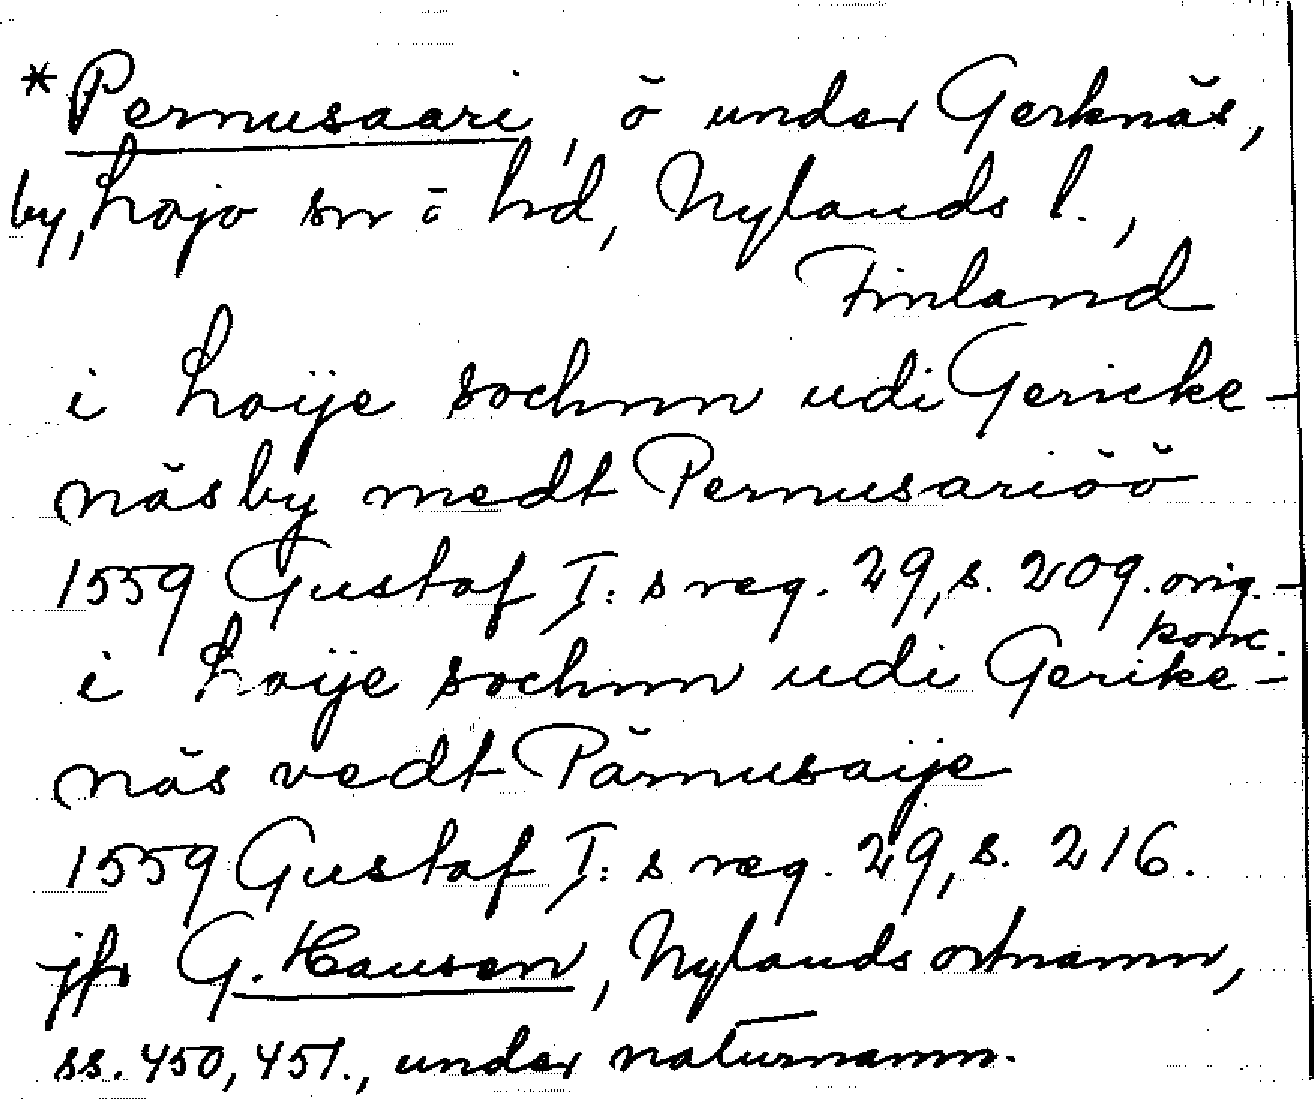 *Pernusaari, ö under Gerknäs,
by, Lojo sn o hd, Nylands l.,
Finland
i Loije sochnn udi Gericke-
näsby medt Pernusariöö
1559 Gustaf I:s reg. 29, s. 209. orig.-
konc.
i Loije sochnn udi Gerike-
näs vedt Pärnusaije
1559 Gustaf I:s reg. 29, s. 216.
jfr G. Hausen, Nylands ortnamn,
ss. 450, 451., under naturnamn.